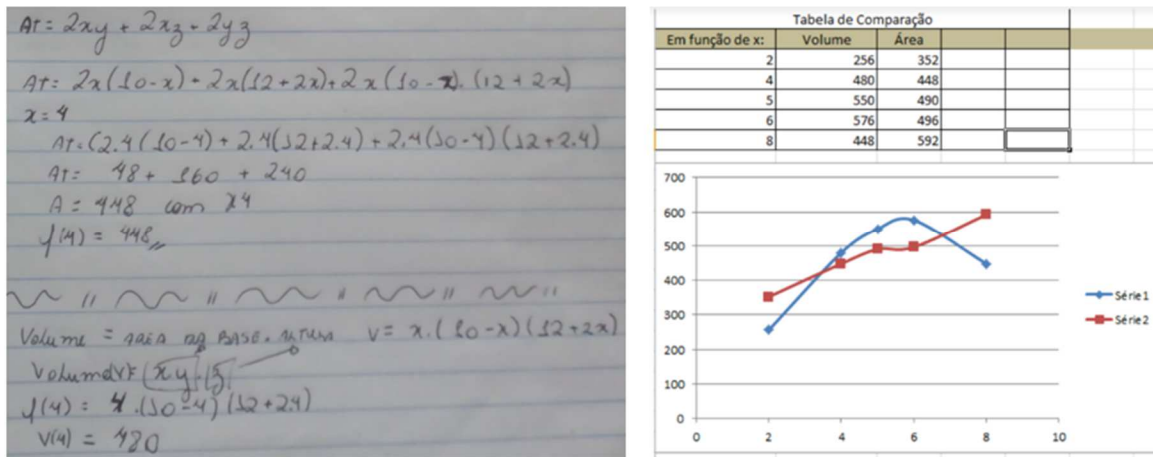 AT = 2xy + 2xz + 2yz
AT = 2x(10-x) + 2x(12+2x) + 2x(10-x). (12+2x)
x = 4
AT = (2.4(10-4) + 2.4(12+2.4) + 2.4(10-4)(12+2.4)
AT = 48 + 160 + 240
A = 448 com x4
f(4) = 448
Volume = área da base. altura V = x.(10-x)(12+2x)
Volume(V)= (xy).(z)
f(4) = 4.(10-4)(12+2.4)
V(4) = 480
Tabela de Comparação
Em função de x: Volume Área
2 256 352
4 480 448
5 550 490
6 576 496
8 448 592
700
600
500
400
300
200
100
0
0 2 4 6 8 10
Série1
Série2